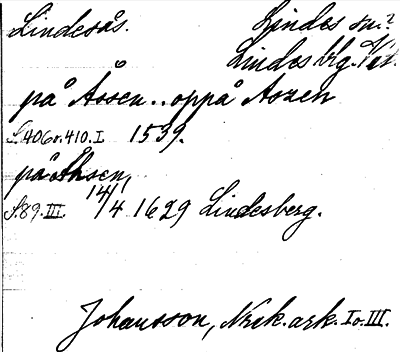 Lindesås. Lindes sn.?
Lindes blg. Vstl.
på Åssen.. oppå Aszen
S. 406 o. 410. I 1539.
på Åhsen,
S. 89. III. 14/4 1629 Lindesberg.
Johansson, Nrik. ark. I o. III.